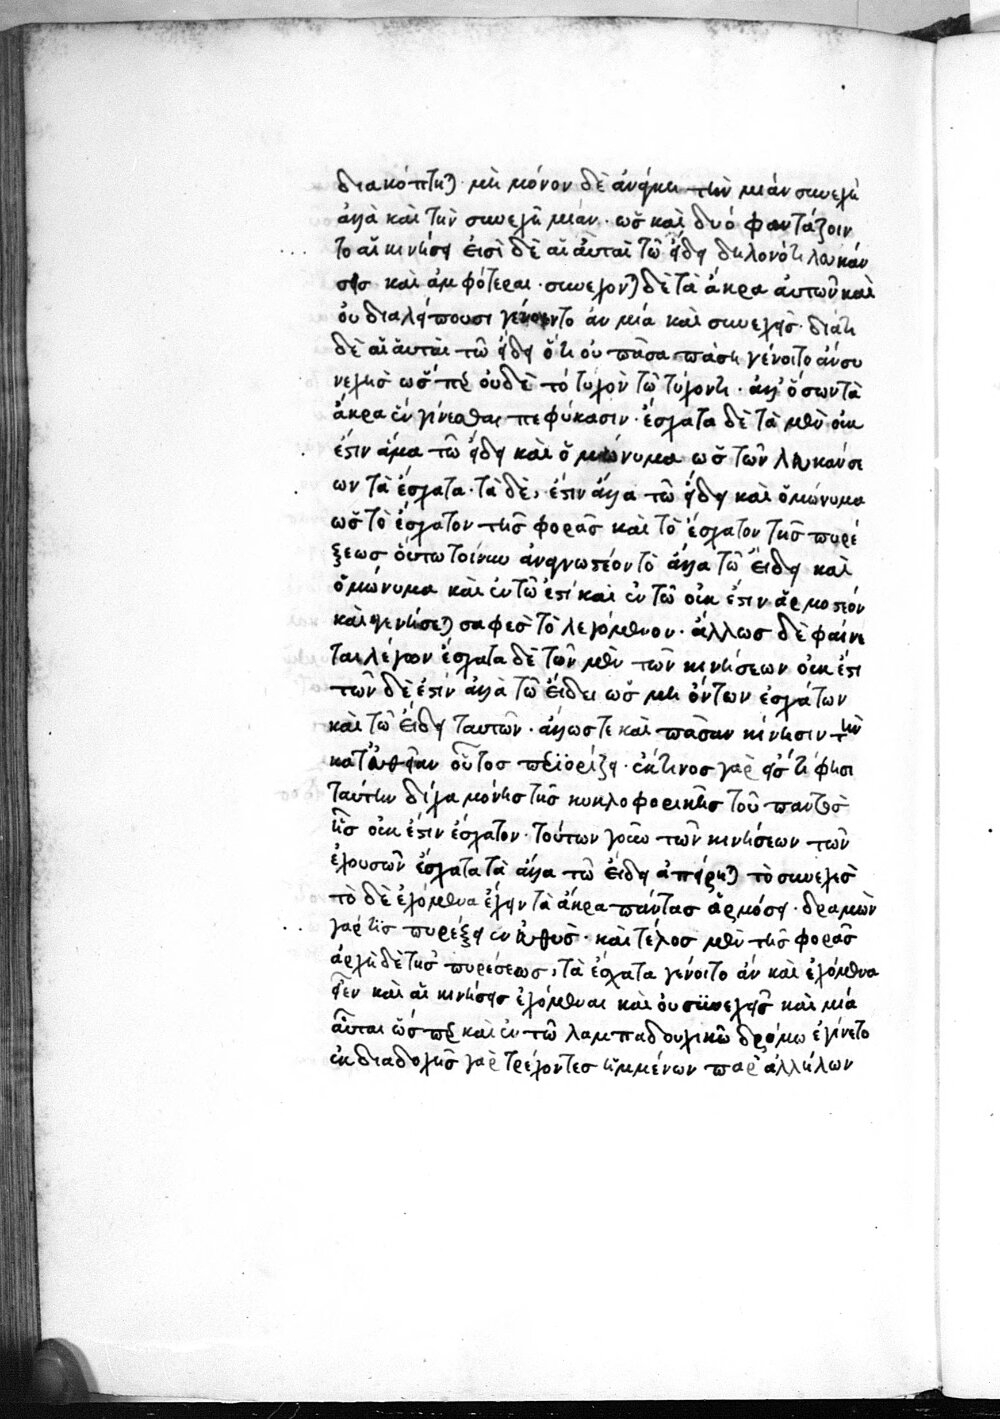 διακόπτηται· μὴ μόνον δὲ ἀνήκει τὴν μίαν συνεχῆ
ἀλλὰ καὶ τὴν συνεχῆ μίαν· ὡς καὶ δυό φαντάζοιν
το αἱ κινήσεις εἰσὶ δὲ αἱ αὐταὶ τῶ εἴδει δηλονότι λευκάν
σεις καὶ ἀμφότεραι· συνέχονται δὲ τὰ ἄκρα αὐτῶν καὶ
οὐ διαλείπουσι γένοιντο ἂν μία καὶ συνεχής· διάτι
δὲ αἱ αὐταὶ τῶ εἴδει ὅτι οὐ πᾶσα πάση γένοιτο ἂν συ
νεχὴς ὥσπερ οὐδὲ τὸ τυχὸν τῶ τυχόντι· ἀλλ' ὅσων τὰ
ἄκρα ἓν γίνεσθαι πεφύκασιν· ἔσχατα δὲ τὰ μὲν οὐκ
ἔστιν ἅμα τῶ εἴδει καὶ ὁμώνυμα ὡς τῶν λευκάνσε
ων τὰ ἔσχατα· τὰ δὲ, ἔστιν ἀλλὰ τῶ εἴδει καὶ ὁμώνυμα
ὡς τὸ ἔσχατον τῆς φορᾶς καὶ τὸ ἔσχατον τῆς πυρέ
ξεως οὕτω τοίνυν ἀναγνωστέον τὸ ἀλλὰ τῶ εἴδει καὶ
ὁμώνυμα καὶ ἐν τῶ ἐστὶ καὶ ἐν τῶ οὐκ ἔστιν ἁρμοστέον
καὶ γενήσεται σαφὲς τὸ λεγόμενον· ἄλλως δὲ φαίνε
ται λέγων ἔσχατα δὲ τῶν μὲν τῶν κινήσεων οὐκ ἔστι
τῶν δὲ ἔστιν ἀλλὰ τῶ εἴδει ὡς μὴ ὄντων ἐσχάτων
καὶ τῶ εἴδει ταυτῶν· ἄλλωστε καὶ πᾶσαν κίνησιν τὴν
κατ' εὐθεῖαν οὗτος περιορίζει· ἔκτινος γὰρ εἴς τι φησι
ταύτην δίχα μόνης τῆς κυκλοφορικῆς τοῦ παντὸς
ἧς οὐκ ἔστιν ἔσχατον· τούτων γοῦν τῶν κινήσεων τῶν
ἐχουσῶν ἔσχατα τὰ ἀλλὰ τῶ εἴδει ἀπείρηται τὸ συνεχὲς
τὸ δὲ ἐχόμενα ἔχειν τὰ ἄκρα πάντας ἁρμόσει· δραμὼν
γάρ τις πυρέξει ἐν εὐθὺς· καὶ τέλος μὲν τῆς φορᾶς
ἀρχὴ δὲ τῆς πυρέσεως, τὰ ἔσχατα γένοιτο ἂν καὶ ἐχόμενα
εἶεν καὶ αἱ κινήσεις ἐχόμεναι καὶ οὐ συνεχεῖς καὶ μία
αὗται ὥσπερ καὶ ἐν τῶ λαμπαδουχικῶ δρόμω ἐγίνετο
ἐκ διαδοχῆς γὰρ τρέχοντες ἡμμένων παρ' ἀλλήλων